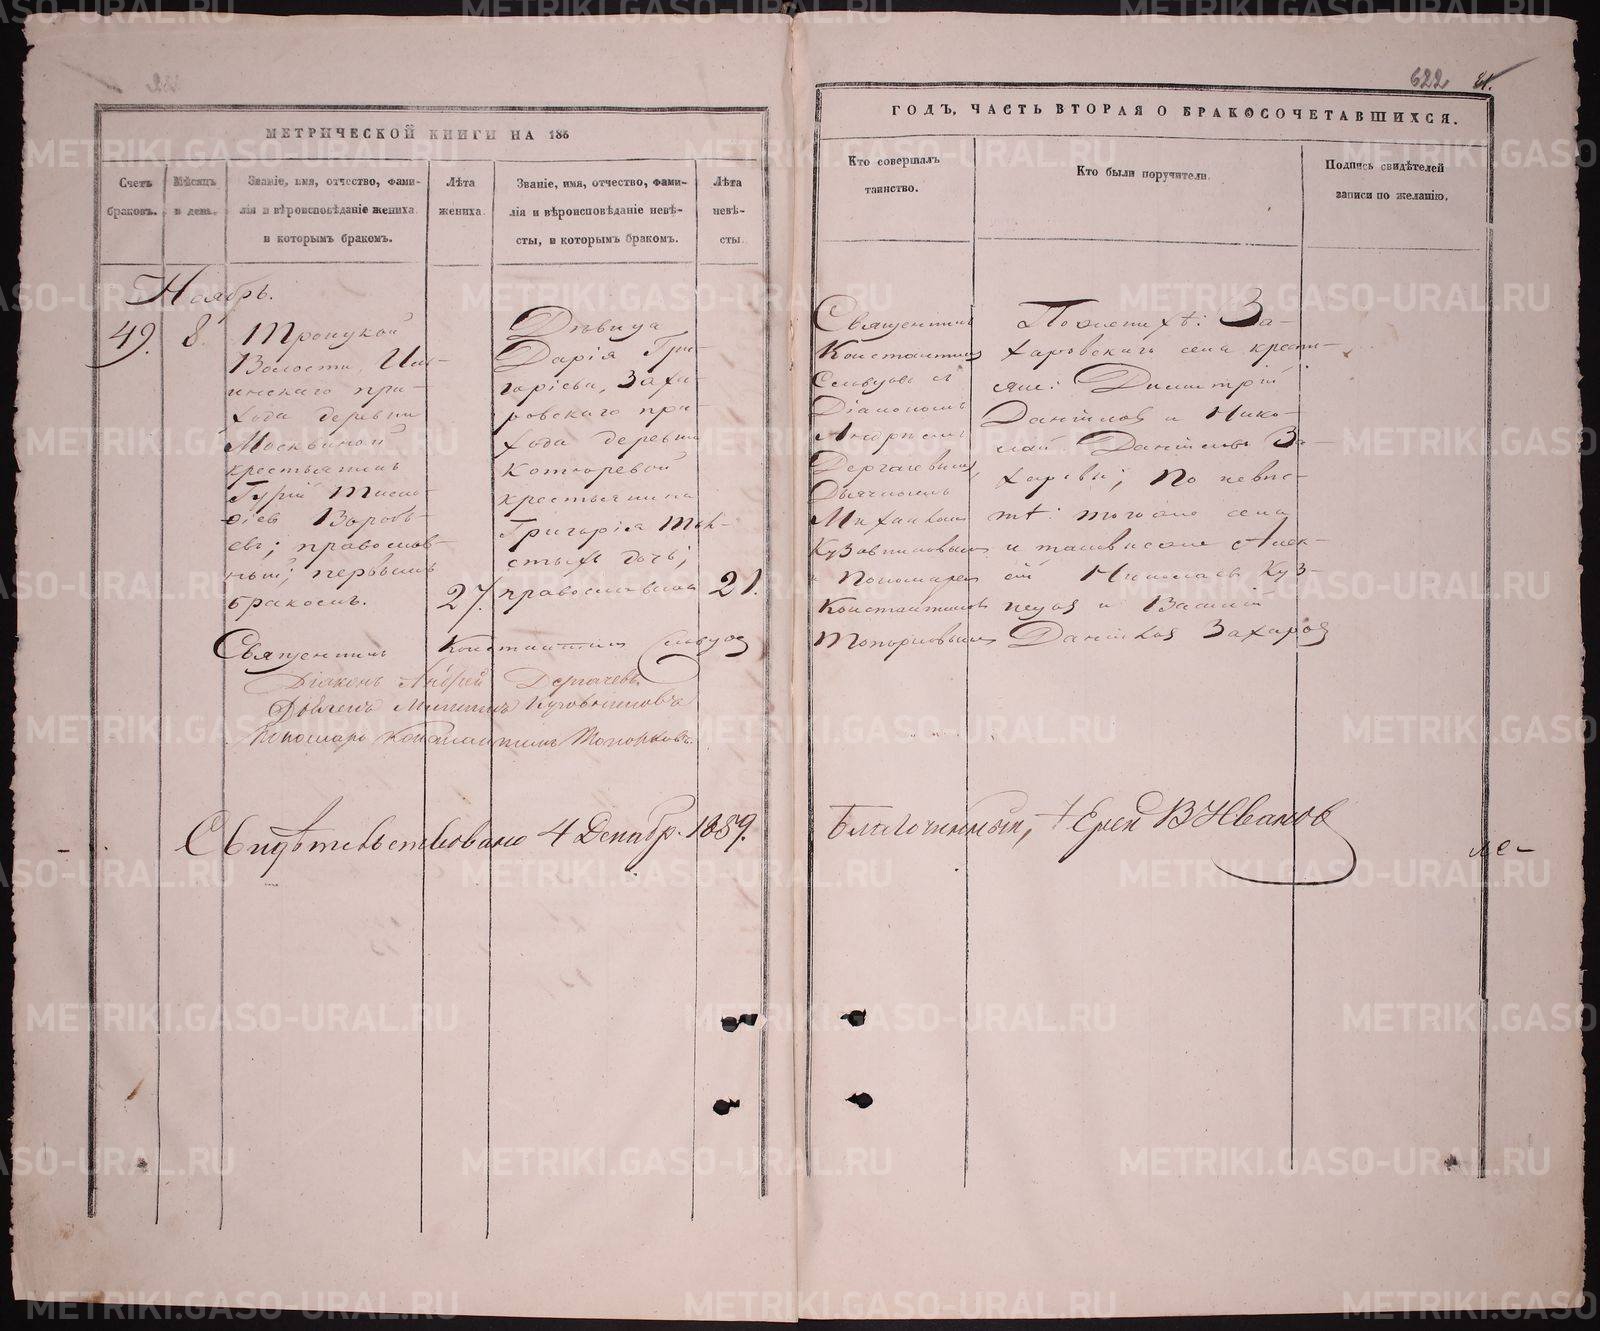 622
МЕТРИЧЕСКОЙ КНИГИ НА 185
Счетъ браковъ.
Мѣсяцъ и день.
Званіе, имя, отчество, фами-
лія и вѣроисповѣданіе жениха
и которымъ бракомъ.
Лѣта
жениха.
Званіе, имя, отчество, фами-
лія и вѣроисповѣданіе невѣ-
сты, и которымъ бракомъ.
Лѣта
невѣ-
сты.
Ноябрь.
49. 8
Троицкой
Волости, Иль-
инскаго при-
хода деревни
Москвиной
крестьянинъ
Гурій
Воробь-
евъ; православ-
ный; первымъ
бракомъ.
27.
Дѣвица
Дарія Гри-
горіева, Заха-
ровскаго при-
хода деревни
Котюревой
крестьянина
Григорія Тол-
стыхъ дочь;
православная
21.
Священникъ Константинъ Сельцовъ
Діаконъ Андрей Дергачевъ
Дьячекъ Михаилъ Кузовниковъ
Пономарь Константинъ Топорковъ.
Свидѣтельствовано 4 Декабр. 1859.
ГОДЪ, ЧАСТЬ ВТОРАЯ О БРАКОСОЧЕТАВШИХСЯ.
Кто совершалъ
таинство.
Кто были поручители.
Подпись свидѣтелей
записи по желанію.
Священникъ
Константинъ
Сельцовъ съ
Діакономъ
Андреемъ
Дергачевымъ,
Дьячкомъ
Михаиломъ
Кузовниковымъ
и Пономаремъ
Константиномъ
Топорковымъ
По женихѣ: За-
харовскаго села крестья-
не: Димитрій
Даніиловъ и Нико-
лай Даніиловъ За-
харовы; По невѣс-
тѣ: тогоже села
и таковыеже Алек-
сѣй Николаевъ Куз-
нецовъ и Василій
Даніиловъ Захаровъ
Благочинный, Іерей В Ивановъ
ле-
METRIKI.GASO-URAL.RU